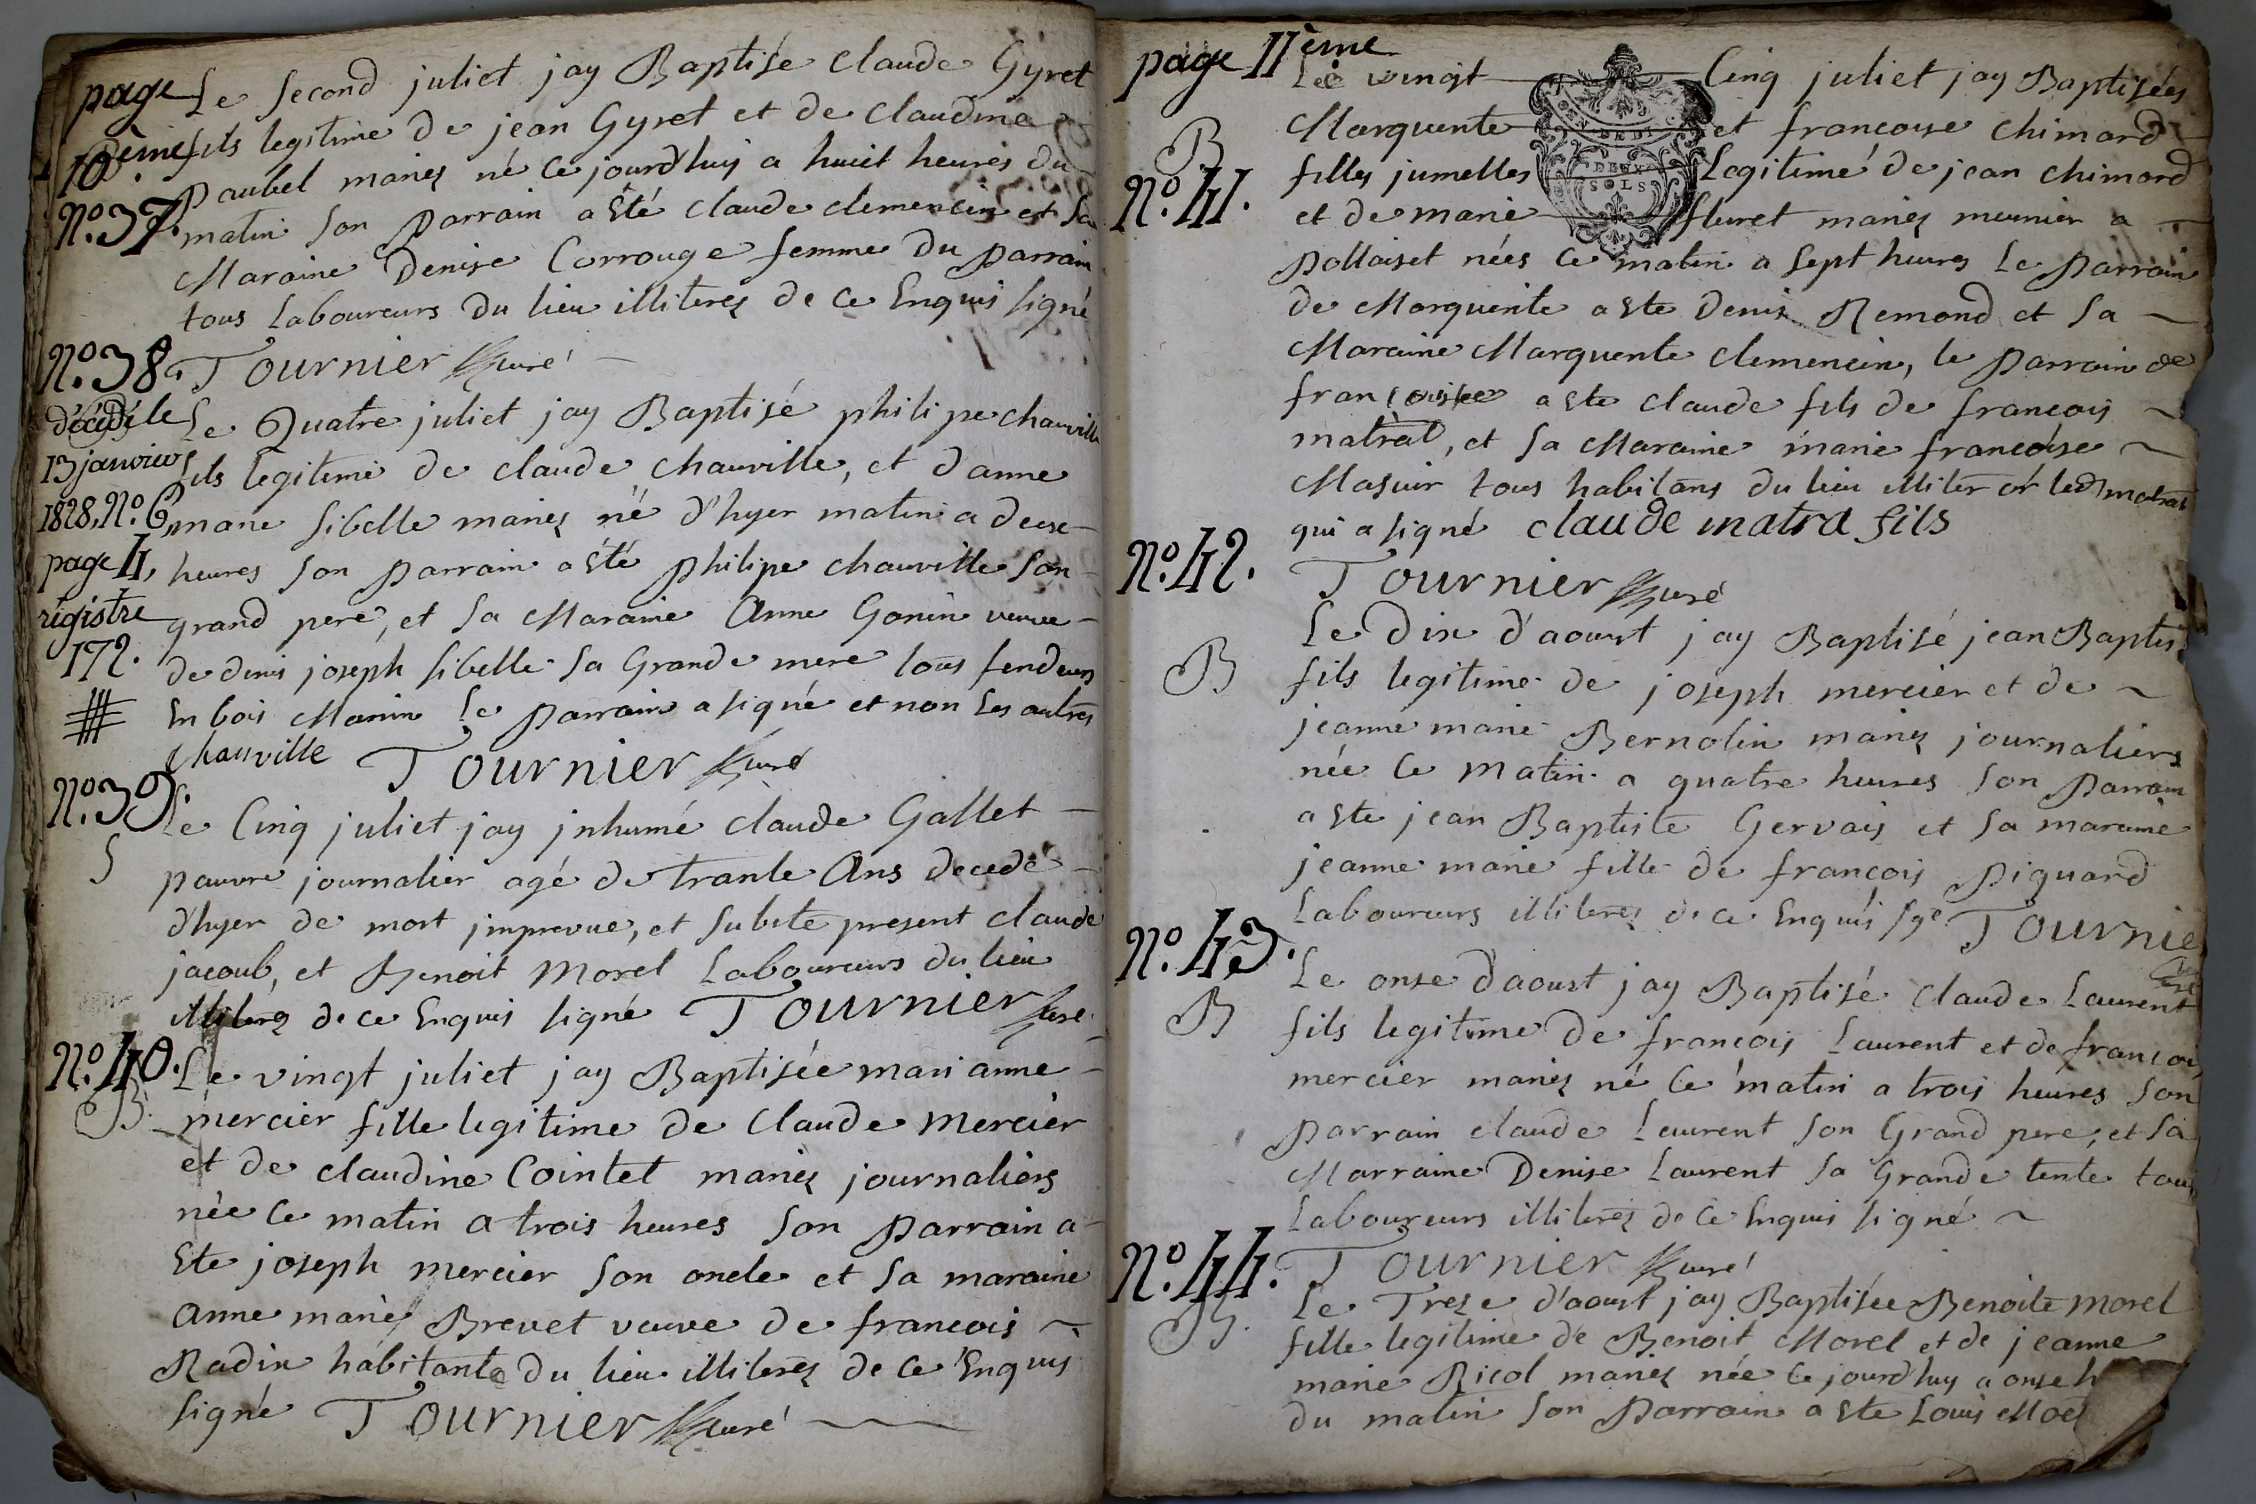 page
10ème
Nº. 37.
Le second juliet jay Baptisé claude Gyret
fils legitime de jean Gyret et de claudina
paubel mariez né ce jourd'huy a huict heures du
matin son parrain a Eté claude clemencin et sa
Maraine Denise Corrouge femme du parrain
tous Laboureurs du lieu illiterez de ce Enquis signé
Tournier curé
Nº. 38.
décédé le
13 janvier
1828, Nº. 6,
page 4,
régistre
172.
Le Quatre juliet jay Baptisé philipe chauville
fils legitime de claude chauville, et d'anne
marie sibelle mariez né d'hyer matin a deux
heures son parrain a Eté philipe chauville son
grand pere, et sa Maraine Anne Gonin veuve
de denis joseph sibelle sa Grande mere tous fendeurs
En bois Manin Le parrain a signé et non Les autres
chauville Tournier curé
Nº. 39.
S
Le Cinq juliet jay jnhumé claude Gallet
pauvre journalier agé de trante Ans decedé
d'hyer de mort jmprevue, et subite present claude
jacoub, et Benoit Morel Laboureurs du lieu
illiterez de ce Enquis signé Tournier curé
Nº. 40.
B
Le vingt juliet jay Baptisée mari anne
mercier fille legitime de claude Mercier
et de claudine Cointet mariez journaliers
née ce matin a trois heures son parrain a
Ete joseph mercier son oncle et sa maraine
Anne marie Brevet veuve de francois
Radix habitante du lieu illiterez de ce Enquis
signé Tournier curé
page 11ème
B
Nº. 41.
EN. DE DI. C
DEUX
SOLS
Le vingt Cinq juliet jay Baptisées
Marguerite et francoise chimard
filles jumelles Legitime de jean chimard
et de marie fluret mariez meunier a
pollaiset nées ce matin a sept heures Le parrain
de Marguerite a Ete Denis Remond et sa
Maraine Marguerite clemencin, le parrain de
francoise a Ete claude fils de francois
matrat, et sa Maraine marie francoise
Masuir tous habitans du lieu illiter or led matrat
qui a signé claude matra fils
Tournier curé
Nº. 42.
B
Le Dix d'aoust jay Baptisé jean Baptis
fils legitime de joseph mercier et de
jeanne marie Bernolin mariez journaliers
née ce matin a quatre heures son parrain
a Ete jean Baptiste Gervais et sa maraine
jeanne marie fille de francois piguard
Laboureurs illiterez de ce Enquis sgé Tournier
curé
Nº. 43.
B
Le onse d'aoust jay Baptisé claude Laurent
fils legitime de francois Laurent et de francoi
mercier mariez né ce matin a trois heures son
parrain claude Laurent son Grand pere, et sa
Marraine Denise Laurent sa Grande tente tous
Laboureurs illiterez de ce Enquis signé
Tournier curé
Nº. 44.
B.
Le Treze d'aoust jay Baptisée Benoite Morel
fille legitime de Benoit Morel et de jeanne
marie Ricol mariez née ce jourd'huy a onse h
du matin son parrain a Ete Louis